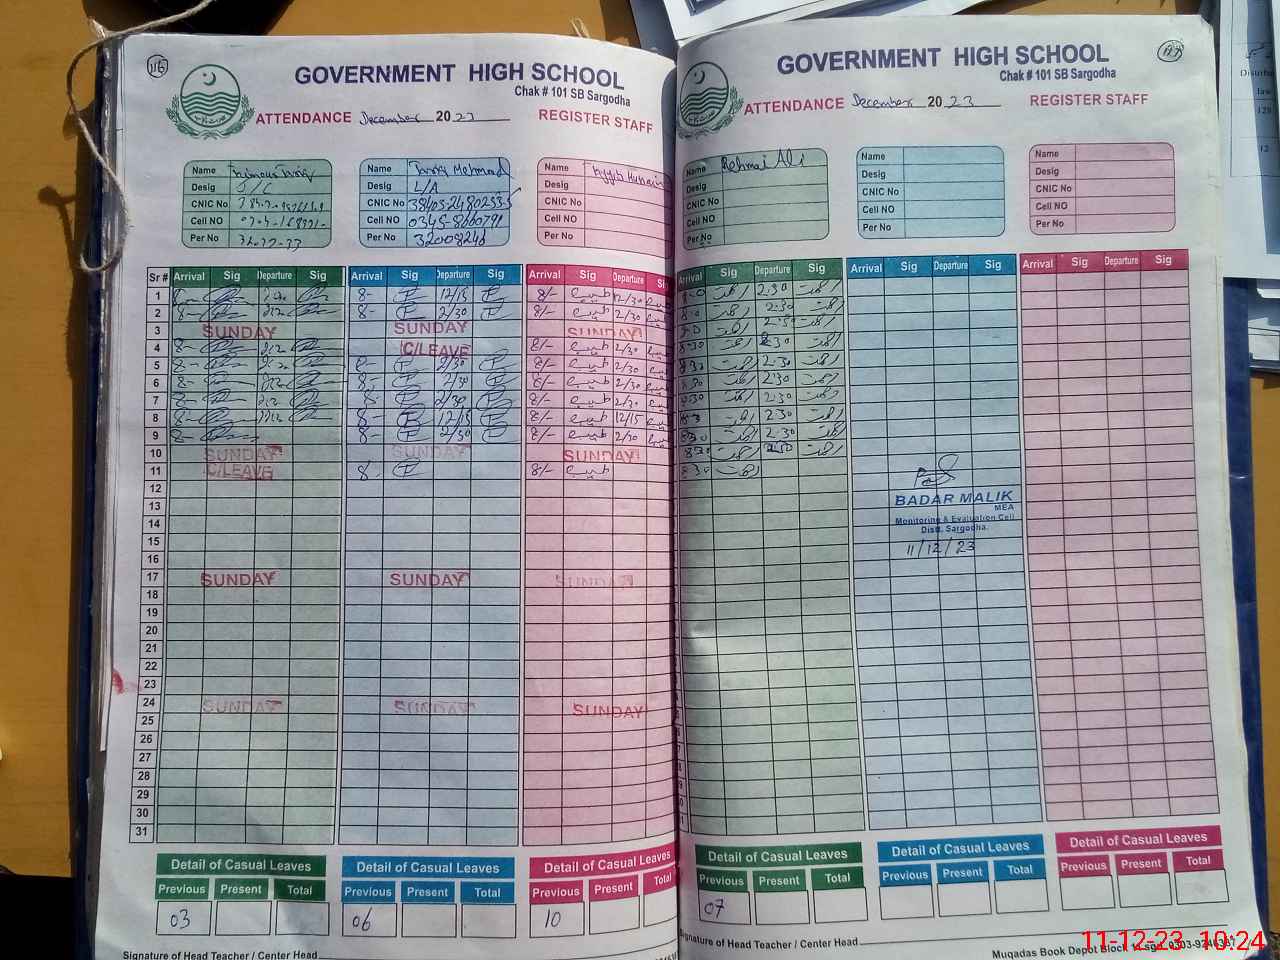 116
GOVERNMENT HIGH SCHOOL
Chak # 101 SB Sargodha
ATTENDANCE December 2023 REGISTER STAFF
Name
Desig J/C
CNIC No
Cell NO
Per No
Name Tariq Mehmood
Desig L/A
CNIC No 38403-2480233-5
Cell NO 0345-8660791
Per No 32008246
Name Tayyib Hussain
Desig
CNIC No
Cell NO
Per No
Sr # Arrival Sig Departure Sig Arrival Sig Departure Sig Arrival Sig Departure
1 8- 8- 12/15 8/- طیب 12/30
2 8- 8- 2/30 8/- طیب 2/30
3 SUNDAY SUNDAY SUNDAY
4 8- C/LEAVE 8/- طیب 2/30
5 8- 8- 2/30 8/- طیب 2/30
6 8- 8- 2/30 8/- طیب 2/30
7 8- 8- 2/30 8/- طیب 2/30
8 8- 8- 12/15 8/- طیب 12/15
9 8- 8- 2/30 8/- طیب 2/30
10 SUNDAY SUNDAY SUNDAY
11 C/LEAVE 8- 8/- طیب
12
13
14
15
16
17 SUNDAY SUNDAY SUNDAY
18
19
20
21
22
23
24 SUNDAY SUNDAY SUNDAY
25
26
27
28
29
30
31
Detail of Casual Leaves Detail of Casual Leaves Detail of Casual Leaves
Previous Present Total Previous Present Total Previous Present Total
03 06 10
Signature of Head Teacher / Center Head
GOVERNMENT HIGH SCHOOL
Chak # 101 SB Sargodha
ATTENDANCE December 2023 REGISTER STAFF
Name Rehmat Ali
Desig
CNIC No
Cell NO
Per No
Name
Desig
CNIC No
Cell NO
Per No
Name
Desig
CNIC No
Cell NO
Per No
Arrival Sig Departure Sig Arrival Sig Departure Sig Arrival Sig Departure Sig
رحمت 2:30 رحمت
رحمت 2:30 رحمت
رحمت 2:30 رحمت
8:30 رحمت 2:30 رحمت
8:30 رحمت 2:30 رحمت
رحمت 2:30 رحمت
رحمت 2:30 رحمت
رحمت 2:30 رحمت
رحمت 2:30 رحمت
رحمت 2:30 رحمت
8:30 رحمت
BADAR MALIK
MEA
Monitoring & Evaluation Cell
Distt. Sargodha.
11/12/23
Detail of Casual Leaves Detail of Casual Leaves Detail of Casual Leaves
Previous Present Total Previous Present Total Previous Present Total
07
Signature of Head Teacher / Center Head
Muqadas Book Depot Block
11-12-23 10:24